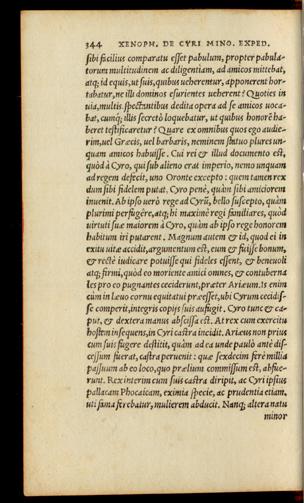 344 XENOPH. DE CYRI MINO. EXPED.
sibi facilius comparatu esset pabulum, propter pabula-
torum multitudinem ac diligentiam, ad amicos mittebat,
atq; id equis, ut suis, quibus ueherentur, apponerent hor-
tabatur, ne illi dominos esurientes ueherent? Quoties in
uia, multis spectantibus dedita opera ad se amicos uoca-
bat, cumq; illis secretò loquebatur, ut quibus honorē ha-
beret testificaretur? Quare ex omnibus quos ego audie-
rim, uel Græcis, uel barbaris, neminem statuo plures un-
quam amicos habuisse. Cui rei & illud documento est,
quòd à Cyro, qui sub alieno erat imperio, nemo unquam
ad regem defecit, uno Oronte excepto: quem tamen rex
dum sibi fidelem putat, Cyro penè, quàm sibi amiciorem
inuenit. Ab ipso uerò rege ad Cyrū, bello suscepto, quàm
plurimi perfugêre, atq; hi maximè regi familiares, quòd
uirtuti suæ maiorem à Cyro, quàm ab ipso rege honorem
habitum iri putarent. Magnum autem & id, quod ei in
exitu uitæ accidit, argumentum est, eum & fuisse bonum,
& rectè iudicare potuisse qui fideles essent, & beneuoli
atq; firmi, quòd eo moriente amici omnes, & contuberna
les pro eo pugnantes ceciderunt, præter Arieum. Is enim
cùm in læuo cornu equitatui præesset, ubi Cyrum cecidis-
se comperit, integris copijs suis aufugit. Cyro tunc & ca-
put, & dextera manus abscissa est. At rex cum exercitu
hostem insequens, in Cyri castra incidit. Arieus non prius
cum suis fugere destitit, quàm ad ea unde paulò antè dis-
cessum fuerat, castra peruenit: quæ sexdecim ferè millia
passuum ab eo loco, quo prælium commissum est, abfue-
runt. Rex interim cum suis castra diripit, ac Cyri ipsius
pallacam Phocaicam, eximia specie, ac prudentia etiam,
uti fama ferebatur, mulierem abducit. Nanq; altera natu
minor